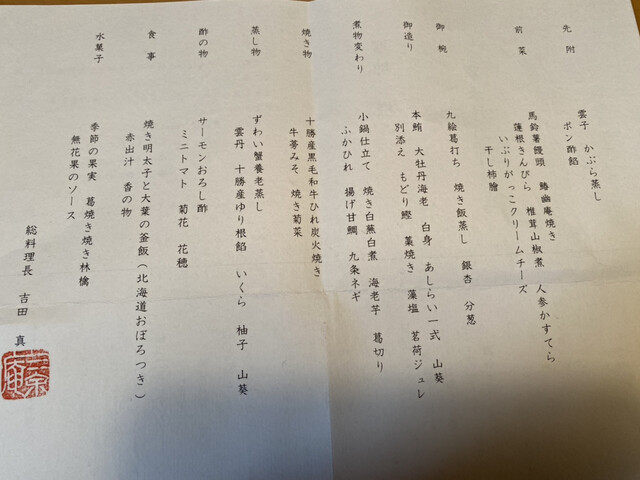 先附
雲子 かぶら蒸し
ポン酢餡
前菜
馬鈴薯饅頭 鰆幽庵焼き 人参かすてら
蓮根きんぴら 椎茸山椒煮
いぶりがっこクリームチーズ
干し柿膾
御椀
九絵葛打ち 焼き飯蒸し 銀杏 分葱
御造り
本鮪 大牡丹海老 白身 あしらい一式 山葵
別添え もどり鰹 藁焼き 藻塩 茗荷ジュレ
煮物変わり
小鍋仕立て 焼き白蕪白煮 海老芋 葛切り
ふかひれ 揚げ甘鯛 九条ネギ
焼き物
十勝産黒毛和牛ひれ炭火焼き
牛蒡みそ 焼き菊菜
蒸し物
ずわい蟹養老蒸し
雲丹 十勝産ゆり根餡 いくら 柚子 山葵
酢の物
サーモンおろし酢
ミニトマト 菊花 花穂
食事
焼き明太子と大葉の釜飯(北海道おぼろつき)
赤出汁 香の物
水菓子
季節の果実 葛焼き焼き林檎
無花果のソース
総料理長 吉田 真